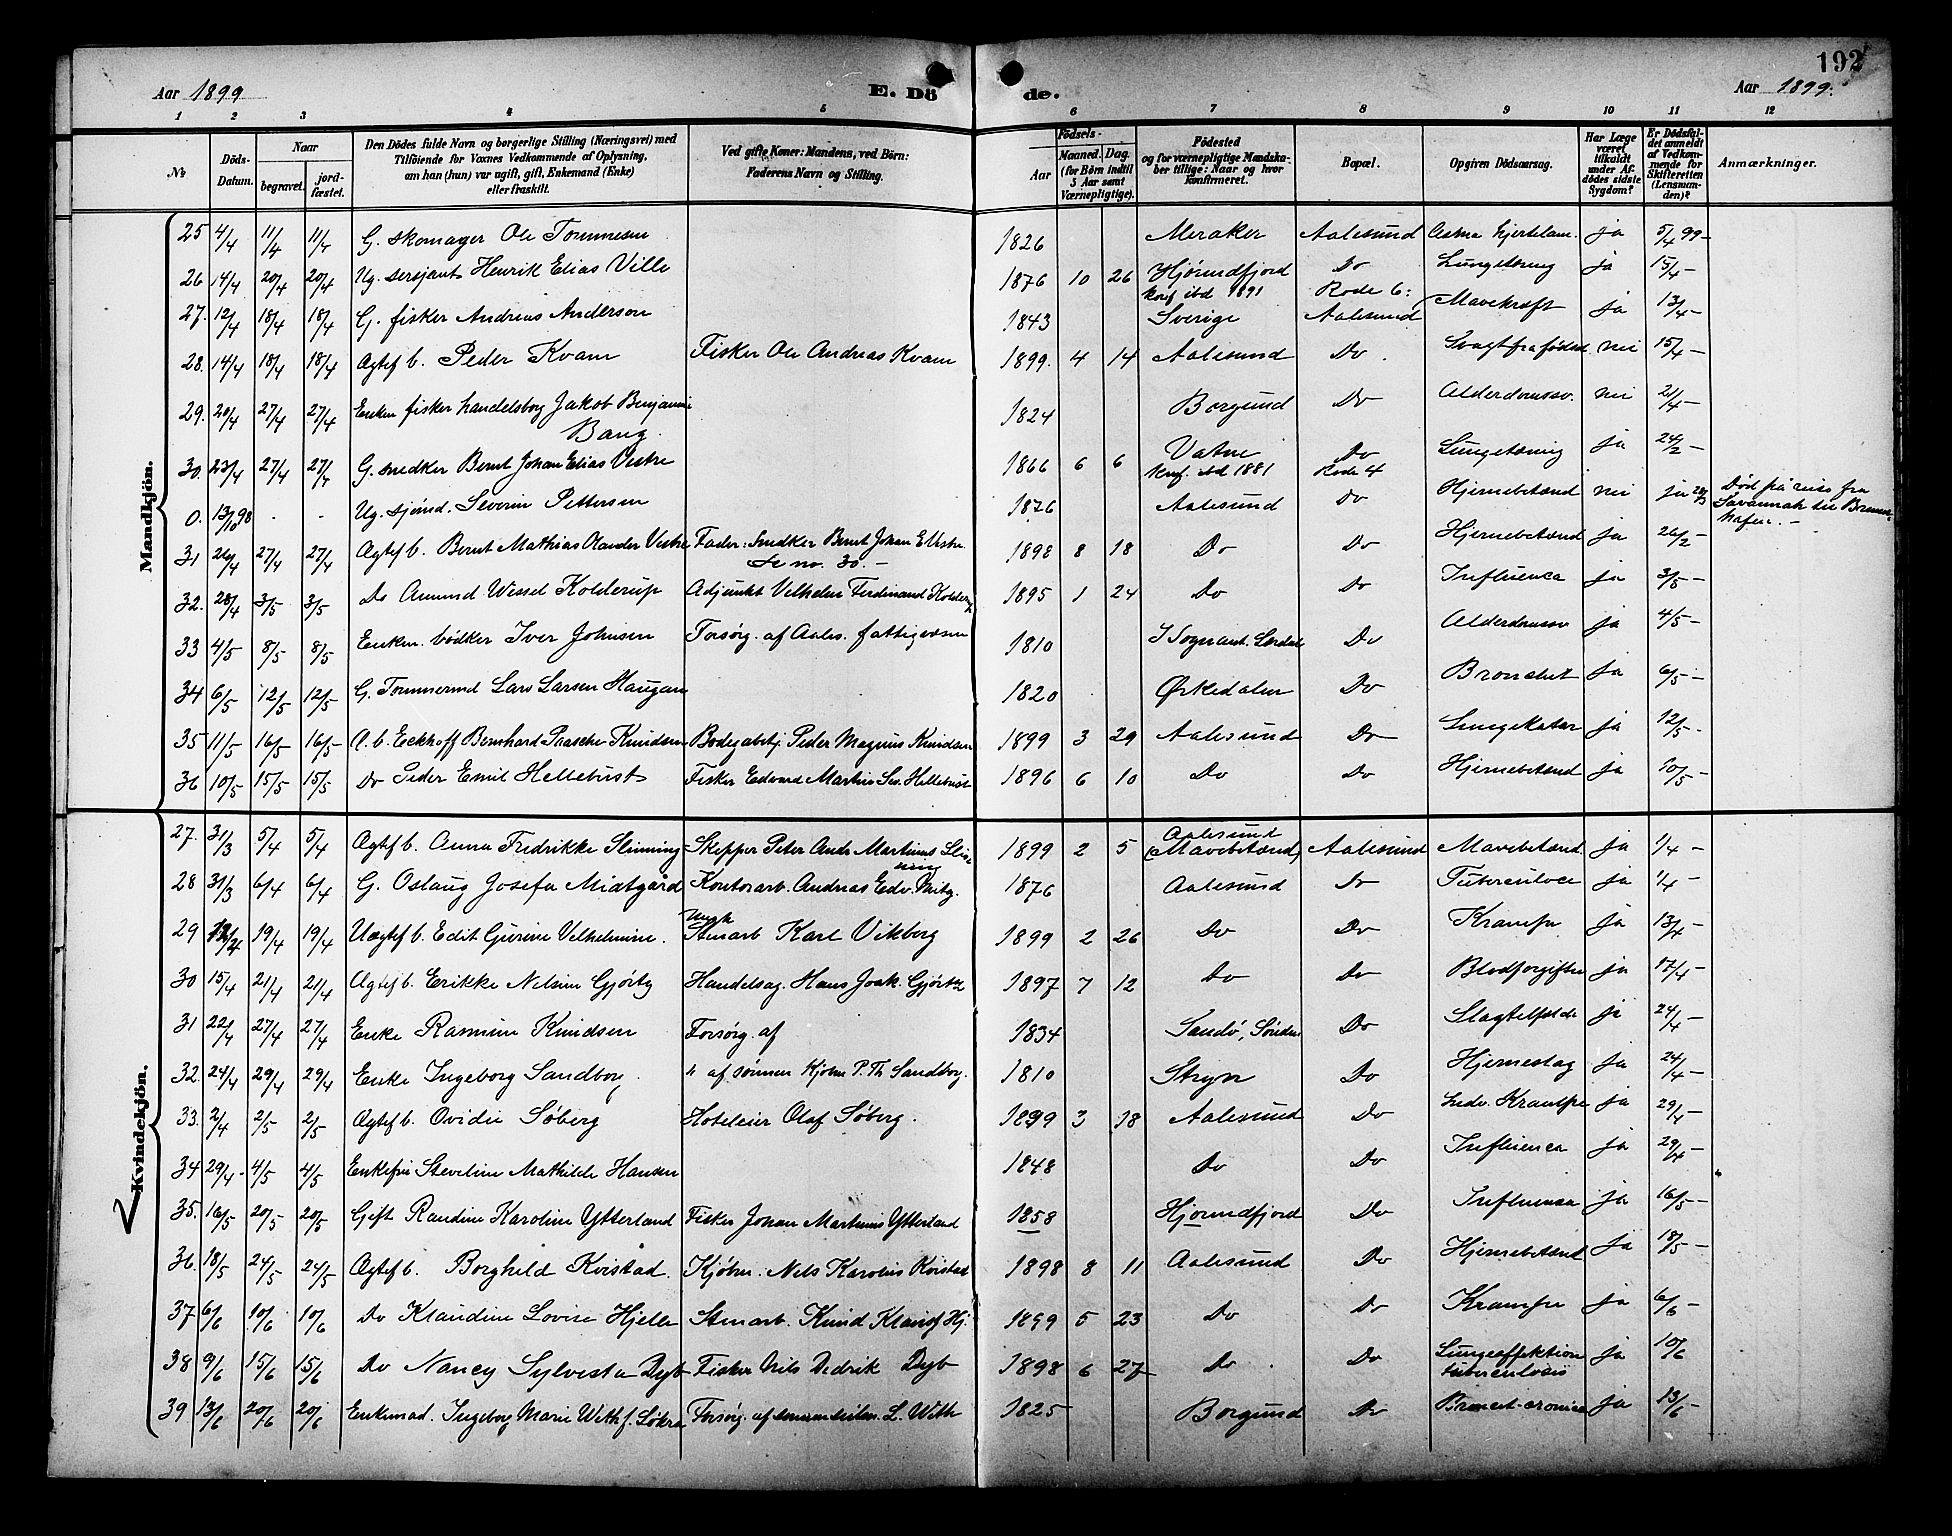 192
Aar 1899 E. Dö de. Aar 1899.
1 2 3 4 5 6 7 8 9 10 11 12
No
Döds-Datum.
Naar
begravet. jordfæstet.
Den Dödes fulde Navn og borgerlige Stilling (Næringsvei) med
Tilföiende for Voxnes Vedkommende af Oplysning,
om han (hun) var ugift, gift, Enkemand (Enke)
eller fraskilt.
Ved gifte Koner: Mandens, ved Börn:
Faderens Navn og Stilling.
Födsels-
Aar Maaned. Dag.
(for Börn indtil
5 Aar samt
Værnepligtige).
Födested
og for værnepligtige Mandska-
ber tillige: Naar og hvor
konfirmeret.
Bopæl.
Opgiven Dödsaarsag.
Har Læge
været
tilkaldt
under Af-
dödes sidste
Sygdom?
Er Dödsfal-
det anmeldt
af Vedkom-
mende for
Skifteretten
(Lensman-
den)?
Anmærkninger.
Mandkjön.
25 4/4 11/4 11/4 G. skomager Ole Tommesen 1826 Meraker Aalesund Astma hjertelam. ja 5/4 99-
26 14/4 20/4 20/4 Ug. sersjant Henrik Elias Ville 1876 10 26 Hjørundfjord Do Lungetæring ja 15/4 -
konf ibd 1891 Rode 6:
27. 12/4 18/4 18/4 G. fisker Andreas Anderson 1843 Sverige Aalesund Mavekræft ja 13/4 -
28. 14/4 18/4 18/4 Ægtef b. Peder Kvam Fisker Ole Andreas Kvam 1899. 4 14 Aalesund Do. Svagt fra fødsel nei 15/4 -
29. 20/4 27/4 27/4 Enkem fisker handelsborg Jakob Benjamin 1824 Borgund Do Alderdomssv. nei 21/4 -
Bang.
30. 23/4 27/4 27/4 G. snedker Bernt Johan Elias Vestre 1866 6 6 Vatne Do Lungetæring ja 24/2 -
konf. ibd 1881 Rode 4
0. 13/10 98 - - Ug. sjømd. Severin Pettersen 1876 Aalesund Do Hjernebetænd nei ja Död på reise fra
Savannah til Bremer-
hafen. -
31 26/4 27/4 27/4 Ægtef b. Bernt Mathias Olander Vestre Fader: Snedker Bernt Johan E Vestre 1898 8 18 Do Do Hjernebetænd ja 26/2 -
Se no. 30. -
32. 28/4 3/5 3/5 Do Amund Wessel Kolderup Adjunkt Vilhelm Ferdinand Kolderup 1895 1 24 Do Do Influenca ja 3/5 -
33 4/5 8/5 8/5 Enkem. bödker Iver Johnsen Forsörg. af Aales. fattigvæsen 1810 Do Alderdomssv ja 4/5 -
34 6/5 12/5 12/5 G. Tømmermd Lars Larsen Haugan 1820 Ørkedalen Do Bronchit ja 6/5 -
35 11/5 16/5 16/5 Æ. b. Eeckhoff Bernhard Paasche Knudsen Bodegabetj. Peder Magnus Knudsen 1899 3 29 Aalesund Do Lungekatar ja 12/5 -
36 10/5 15/5 15/5 Do Peder Emil Hellebust Fisker Edvard Martin Sev. Hellebust 1896 6 10 Do Do Hjernebetænd ja 10/5 -
Kvindekjön.
27. 31/3 5/4 5/4 Ægtef b. Anna Fredrikke Slinning Skepper Peter Andr Martinus Slinning 1899 2 5 Aalesund (Mavebetænd) Aalesund Mavebetænd ja 1/4 -
28 31/3 6/4 6/4 G. Oslaug Josefa Midtgård Kontorarb. Andreas Edv. 1876 Aalesund Do Tuberculoce ja 1/4 -
29 12/4 19/4 19/4 Uægtef b. Edit Gurine Velhelmine. Ungk Stenarb Karl Vikberg 1899 2 26 Do Do Krampe ja 13/4 -
30 15/4 21/4 21/4 Ægtef b Erikke Nelsine Gjørtz Handelsag. Hans Joak. Gjørtz 1897 7 12 Do Do Blodforgiftn ja 17/4 -
31 22/4 27/4 27/4 Enke Rasmine Knudsen Forsörg. af 1834 Sandö, Söndm Do Slagtilfælde ja 24/4 -
32. 24/4 29/4 29/4 Enke Ingeborg Sandborg " af sønnen Kjøbm P. Th Sandborg. 1810 Stryn Do Hjerneslag ja 24/4 -
33. 2/4 2/5 2/5 Ægtef b. Ovidie Söberg Hoteleier Olaf Söberg. 1899 3 18 Aalesund Do Indv. Krampe ja 29/4 -
34 29/4 - 4/5 4/5 Enkefru Steveline Mathilde Hansen 1848 Do Do Influenca ja 29/4 -
35. 16/5 20/5 20/5 Gift Randine Karoline Ytterland Fisker Johan Martinus Ytterland 1858 Hjørundfjord Do Influensa ja 16/5 -
36. 18/5 24/5 24/5 Ægtef b. Borghild Kvistad. Kjøbm. Nils Karolius Kvistad 1898 8 11 Aalesund Do Hjernebetænd ja 18/5 -
37 6/6 10/6 10/6 Do Klaudine Lovise Hjelle Stenarb. Knud Hj. 1899 5 23 Do Do Krampe ja 6/6 -
38 9/6 15/6 15/6 Do Nancy Sylvesta Dyb Fisker Nils Dedrik Dyb 1898 6 27 Do. Do Lungeaffektion ja 10/6
tuberculosis
39 13/6 20/6 20/6 Enkemad. Ingeborg Marie With f. Forsörg. af L. With 1825 Borgund Do ja 13/6 -